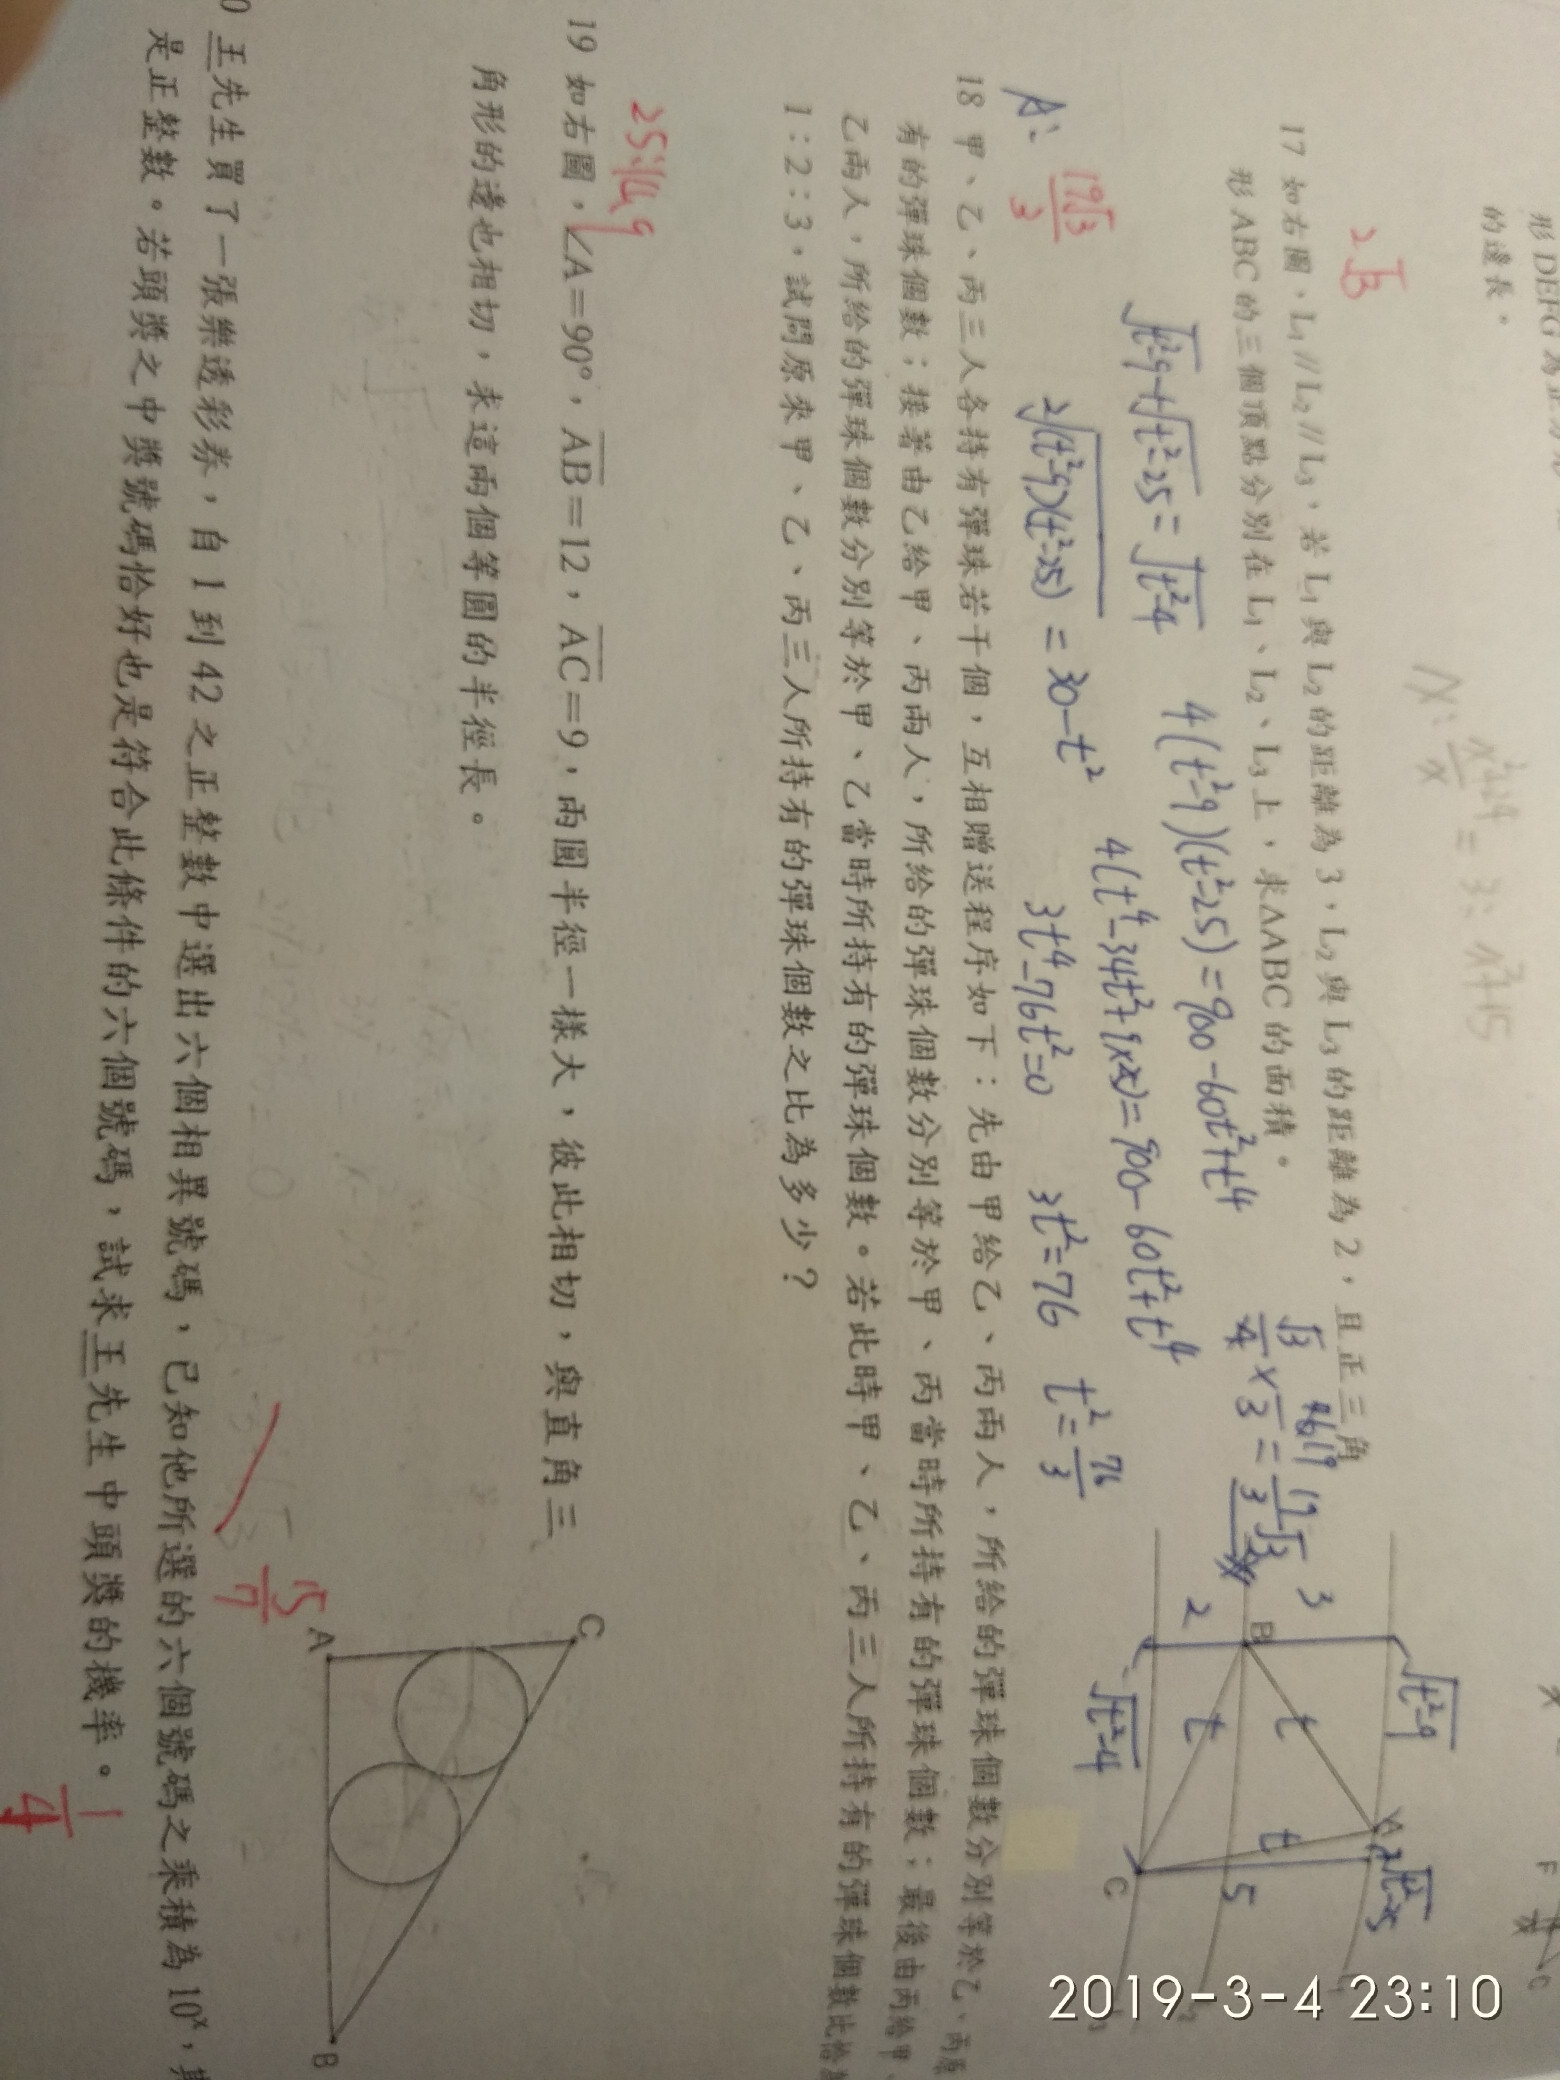 形 DEFG 為正方形
的邊長。
2√3
17 如右圖，L₁ // L₂ // L₃，若 L₁ 與 L₂ 的距離為 3，L₂ 與 L₃ 的距離為 2，且正三角
形 ABC 的三個頂點分別在 L₁、L₂、L₃ 上，求△ABC 的面積。
A: 19√3/3
√t²-9+√t²-25=√t²-4
2√(t²-9)(t²-25) = 30-t²
4(t²-9)(t²-25)=900-60t²+t⁴
4(t⁴-34t²+9×25)=900-60t²+t⁴
3t⁴-76t²=0
3t²=76
t²=76/3
19√3/3
3
2
B
t
t
t
5
A
C
√t²-9
√t²-25
√t²-4
18 甲、乙、丙三人各持有彈珠若干個，互相贈送程序如下：先由甲給乙、丙兩人，所給的彈珠個數分別等於乙、丙原
有的彈珠個數；接著由乙給甲、丙兩人，所給的彈珠個數分別等於甲、丙當時所持有的彈珠個數；最後由丙給甲、
乙兩人，所給的彈珠個數分別等於甲、乙當時所持有的彈珠個數。若此時甲、乙、丙三人所持有的彈珠個數比恰為
1：2：3，試問原來甲、乙、丙三人所持有的彈珠個數之比為多少？
25:14:9
19 如右圖，∠A＝90°，AB＝12，AC＝9，兩圓半徑一樣大，彼此相切，與直角三
角形的邊也相切，求這兩個等圓的半徑長。
15/7
C
A
B
0 王先生買了一張樂透彩券，自 1 到 42 之正整數中選出六個相異號碼，已知他所選的六個號碼之乘積為 10ˣ，其
是正整數。若頭獎之中獎號碼恰好也是符合此條件的六個號碼，試求王先生中頭獎的機率。
1/4
F
C
2019-3-4 23:10